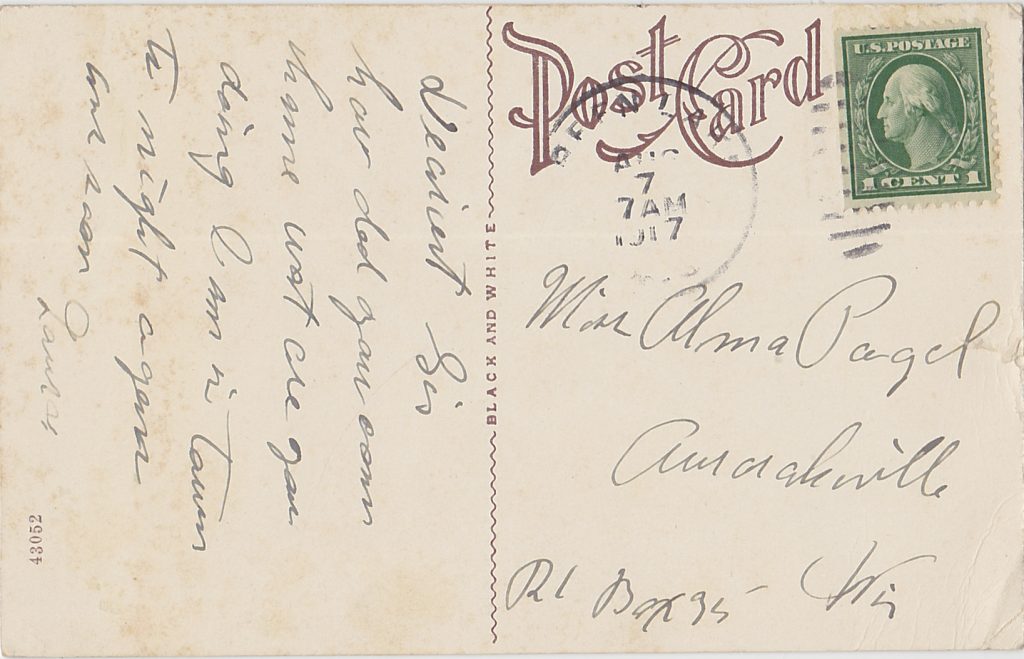 Post Card
U.S. POSTAGE
1 CENT 1
AUG
7
7 AM
1917
Dearest Sis
how dod you com
home wat are you
doing I am in Town
to night agan
ans soon Laura
BLACK AND WHITE
Miss Alma Pagel
Aurorahville
R1 Box 95 Wis
43052